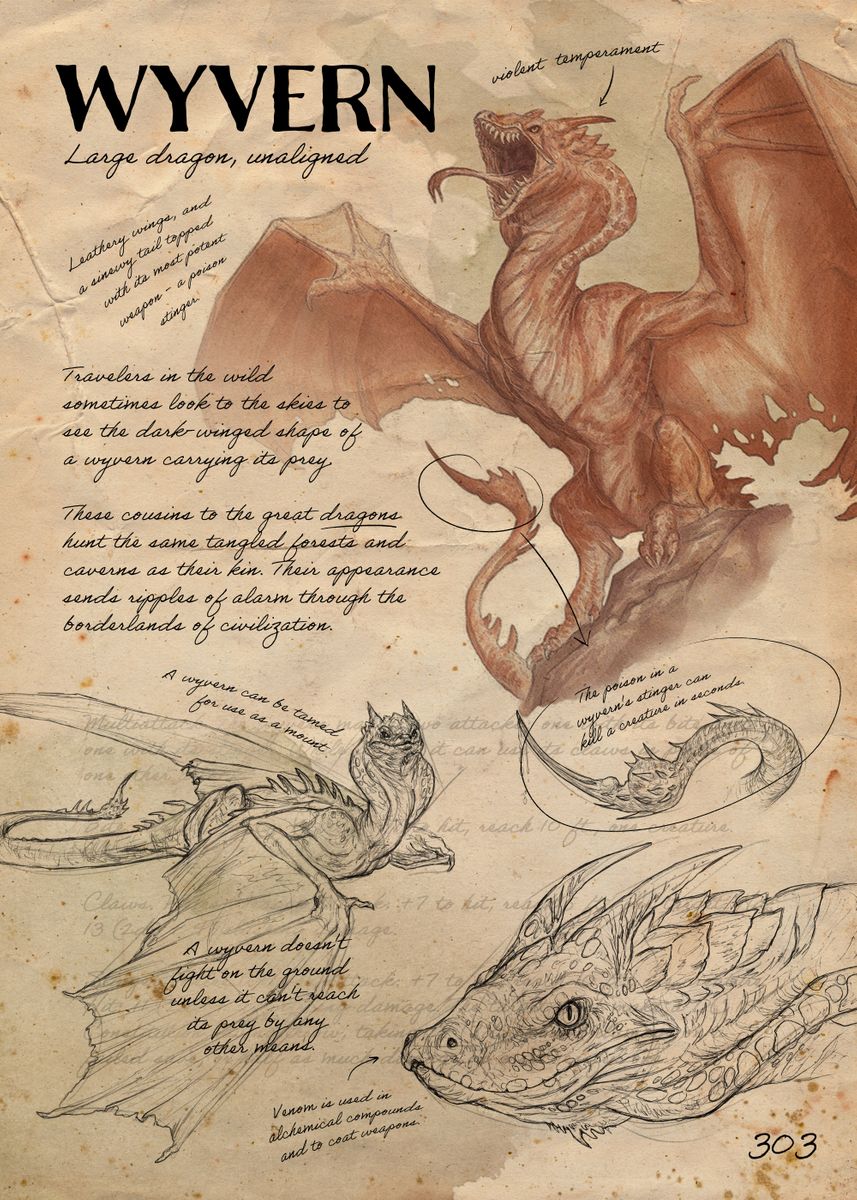 WYVERN
Large dragon, unaligned
violent temperament
Leathery wings, and
a sinewy tail topped
with its most potent
weapon - a poison
stinger.
Travelers in the wild
sometimes look to the skies to
see the dark-winged shape of
a wyvern carrying its prey.
These cousins to the great dragons
hunt the same tangled forests and
caverns as their kin. Their appearance
sends ripples of alarm through the
borderlands of civilization.
A wyvern can be tamed
for use as a mount
The poison in a
wyvern's stinger can
kill a creature in seconds.
two attacks: one
one with its it can use its claws of
one other
hit, reach 10 ft., one creature.
Claws. +7 to hit,
13
A wyvern doesn't
fight on the ground
unless it can't reach
its prey by any
other means.
+7 to
damage
as much
Venom is used in
alchemical compounds
and to coat weapons.
303